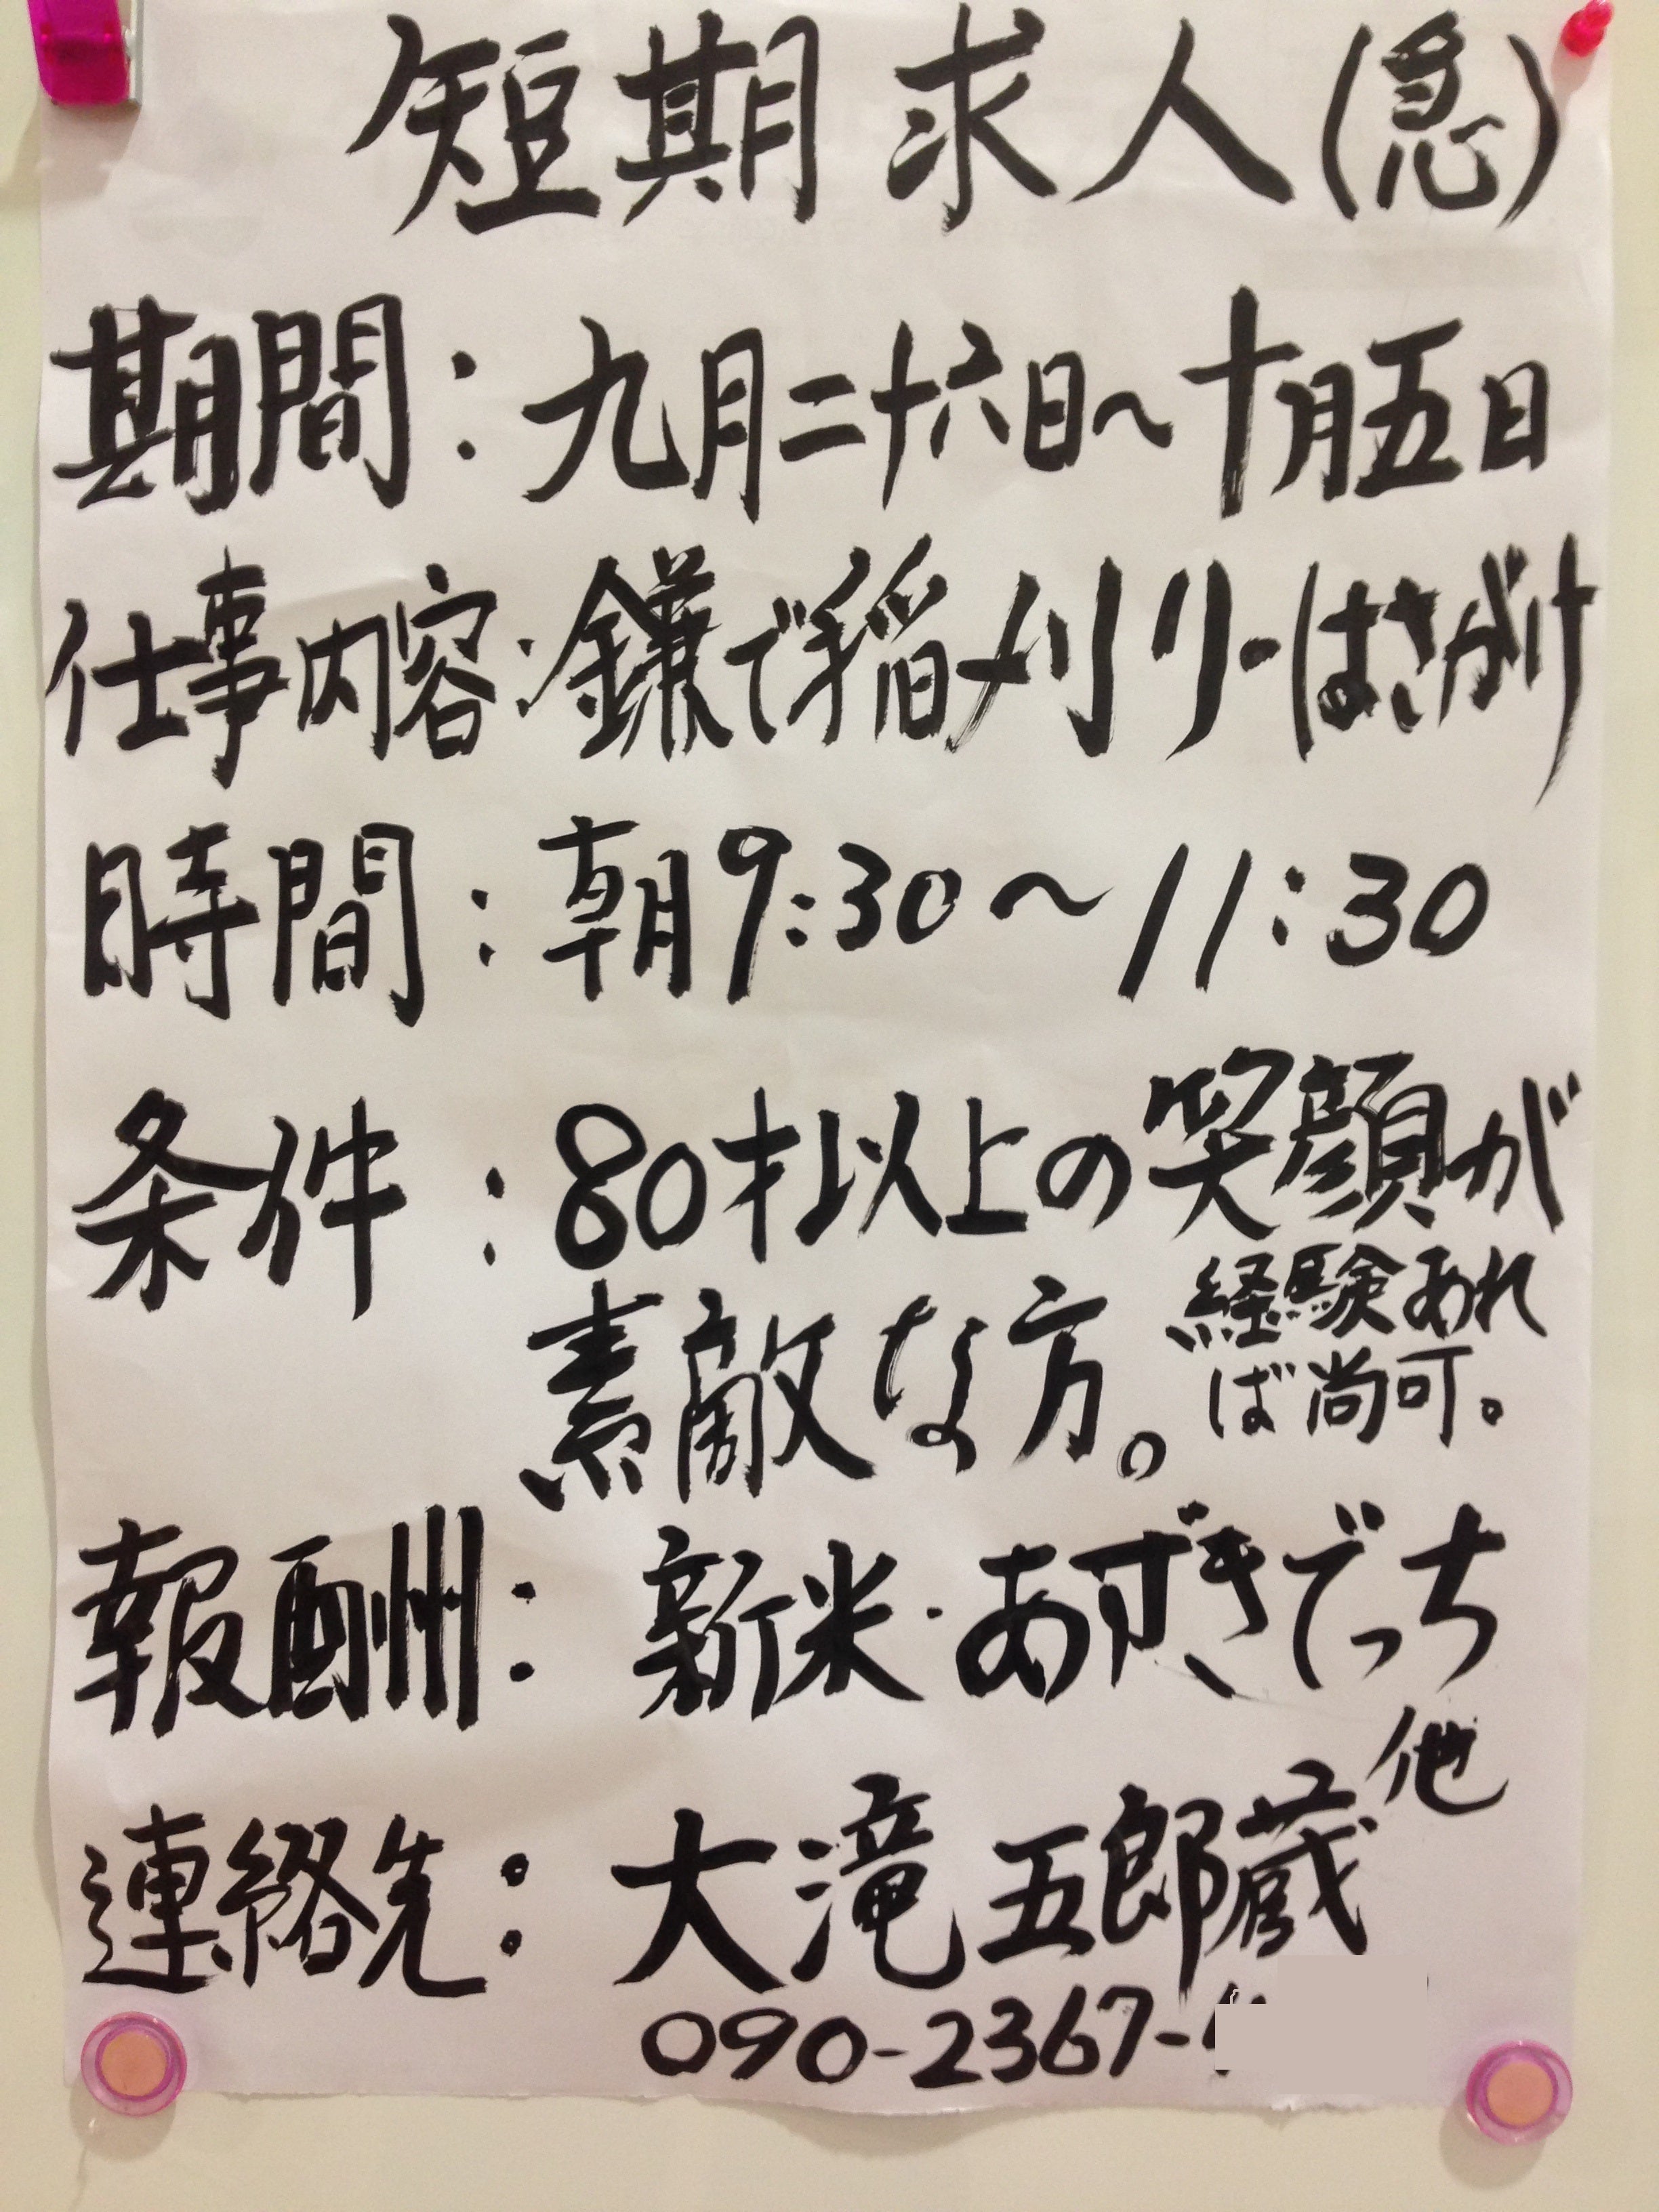 短期求人(急)
期間：九月二十六日〜十月五日
仕事内容：鎌で稲刈り・はさがけ
時間：朝9:30〜11:30
条件：80才以上の笑顔が
素敵な方。
経験あれ
ば尚可。
報酬：新米・あずきでっち
他
連絡先：大滝五郎蔵
090-2367-